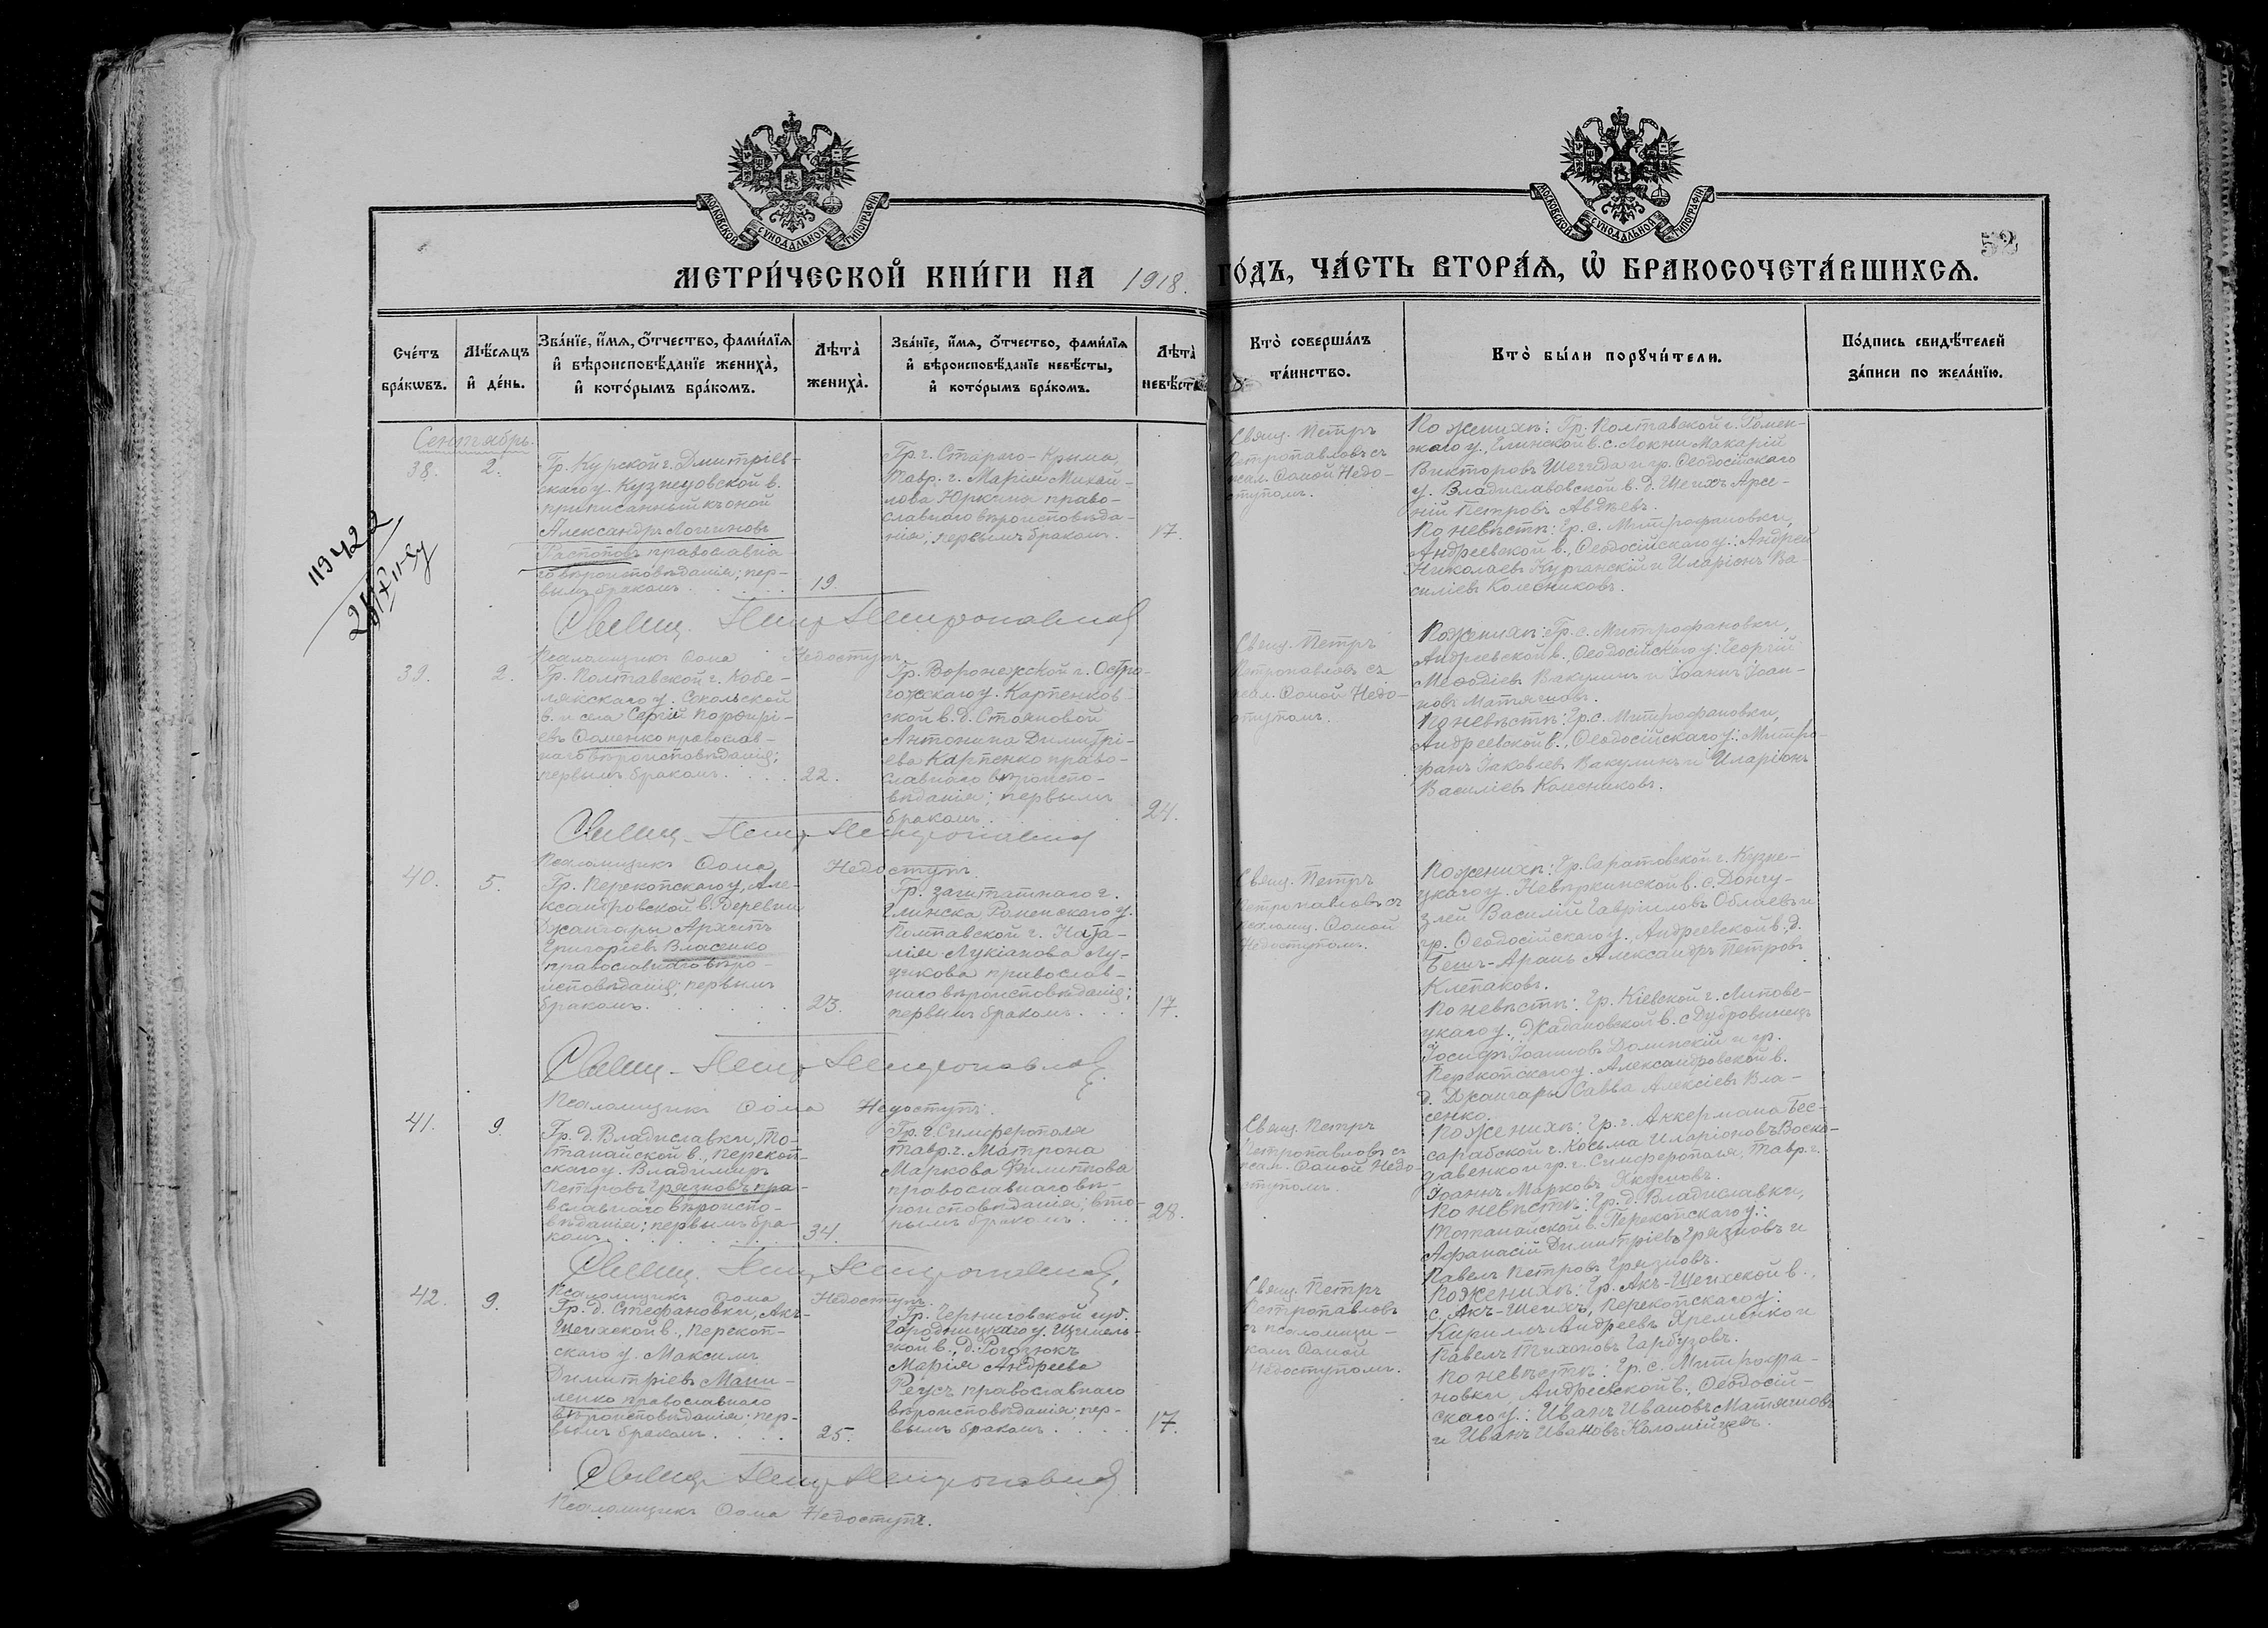 МОСКОВСКОЙ СѴНОДАЛЬНОЙ ТИПОГРАФІИ
МОСКОВСКОЙ СѴНОДАЛЬНОЙ ТИПОГРАФІИ
52
МЕТРИ́ЧЕСКОЙ КНИ́ГИ НА 1918. ГО́ДЪ, ЧА́СТЬ ВТОРА́Я, Ѡ БРАКОСОЧЕТА́ВШИХСЯ.
Сче́тъ бра́кѡвъ.
Мѣ́сяцъ и҆ де́нь.
Зва́нїе, и҆́мя, ѻ҆́тчество, фами́лїя и҆ вѣроисповѣ́данїе жениха̀, и҆ кото́рымъ бра́комъ.
Лѣ́та̀ жениха̀.
Зва́нїе, и҆́мя, ѻ҆́тчество, фами́лїя и҆ вѣроисповѣ́данїе невѣ́сты, и҆ кото́рымъ бра́комъ.
Лѣ́та̀ невѣ́сты
Кто̀ соверша́лъ та́инство.
Кто̀ бы́ли порꙋчи́тели.
По́дпись свидѣ́телей за́писи по жела́нїю.
Сентябрь.
119422
38.
2.
Гр. Курской г. Дмитріев-
скаго у. Кузнецовской в.
приписанный къ оной
Александръ Логгиновъ
Распоповъ православна-
го вѣроисповѣданія; пер-
вымъ бракомъ.
19.
Гр. г. Стараго-Крыма,
Тавр. г. Марія Михай-
лова Юркина право-
славнаго вѣроисповѣда-
нія; первымъ бракомъ.
17.
Свящ. Петръ
Петропавловъ съ
псал. Ѳомой Недо-
ступомъ.
По женихѣ: Гр. Полтавской г. Ромен-
скаго у., Глинской в. с. Локни Макарій
Викторовъ Шегида и гр. Ѳеодосійскаго
у. Владиславовской в. д. Шеихъ Арсе-
ній Петровъ Авдѣевъ.
По невѣстѣ: Гр. с. Митрофановки,
Андреевской в., Ѳеодосійскаго у.: Андрей
Николаевъ Курганскій и Иларіонъ Ва-
силіевъ Колесниковъ.
Свящ. Петр Петропавлов
Псаломщикъ Ѳома Недоступъ.
39.
2.
Гр. Полтавской г. Кобе-
лякскаго у. Сокольской
в. и села Сергій Порфирі-
евъ Ѳоменко православ-
наго вѣроисповѣданія;
первымъ бракомъ.
22.
Гр. Воронежской г. Остро-
гожскаго у. Карпенков-
ской в. д. Стояновой
Антонина Димитрі-
ева Карпенко право-
славнаго вѣроиспо-
вѣданія; первымъ
бракомъ.
24.
Свящ. Петръ
Петропавловъ съ
псал. Ѳомой Недо-
ступомъ.
По женихѣ: Гр. с. Митрофановки,
Андреевской в., Ѳеодосійскаго у.: Георгій
Меѳодіевъ Вакулинъ и Іоаннъ Іоан-
новъ Матяшовъ.
По невѣстѣ: Гр. с. Митрофановки,
Андреевской в., Ѳеодосійскаго у.: Митро-
фанъ Іаковлевъ Вакулинъ и Иларіонъ
Василіевъ Колесниковъ.
Свящ. Петр Петропавлов
Псаломщикъ Ѳома Недоступъ.
40.
5.
Гр. Перекопскаго у, Але-
ксандровской в. Деревни
Джангары Архипъ
Григоріевъ Власенко
православнаго вѣро-
исповѣданія; первымъ
бракомъ.
23.
Гр. заштатнаго г.
Глинска Роменскаго у.
Полтавской г. Ната-
лія Лукіанова
православ-
наго вѣроисповѣданія;
первымъ бракомъ.
17.
Свящ. Петръ
Петропавловъ съ
псаломщ. Ѳомой
Недоступомъ.
По женихѣ: Гр. Саратовской г. Кузне-
цкаго у. Невѣркинской в. с. Донгу-
злей Василій Гавріиловъ Облаевъ и
гр. Ѳеодосійскаго у., Андреевской в., д.
Бешъ-Аранъ Александръ Петровъ
Клепаковъ.
По невѣстѣ: Гр. Кіевской г. Липове-
цкаго у., Жадановской в. с Дубровинецъ
Іосифъ Іоанновъ Долинскій и гр.
Перекопскаго у. Александровской в.
д. Джангары Савва Алексіевъ Вла-
сенко.
Свящ. Петр Петропавлов
Псаломщикъ Ѳома Недоступъ.
41.
9.
Гр. д. Владиславки, То-
танайской в., Перекоп-
скаго у. Владимиръ
Петровъ Грязновъ пра-
вославнаго вѣроиспо-
вѣданія; первымъ бра-
комъ.
34.
Гр. г. Симферополя
Тавр. г. Матрона
Маркова Филиппова
православнаго вѣ-
роисповѣданія; вто-
рымъ бракомъ.
28.
Свящ. Петръ
Петропавловъ съ
псал. Ѳомой Недо-
ступомъ.
По женихѣ: Гр. г. Аккермана Бес-
сарабской г. Косьма Иларіоновъ
и гр. г. Симферополя, Тавр. г.
Іоаннъ Марковъ Якимовъ.
По невѣстѣ: Гр. д. Владиславки,
Тотанайской в. Перекопскаго у.:
Аѳанасій Димитріевъ Грязновъ и
Павелъ Петровъ Грязновъ.
Свящ. Петр Петропавлов
Псаломщикъ Ѳома Недоступъ.
42.
9.
Гр. д. Стефановки, Акъ-
Шеихской в., Перекоп-
скаго у. Максимъ
Димитріевъ Мани-
ленко православнаго
вѣроисповѣданія; пер-
вымъ бракомъ.
25.
Гр. Черниговской губ.
Городницкаго у.
ской в., д.
Марія Андреева
Реусъ православнаго
вѣроисповѣданія; пер-
вымъ бракомъ.
17.
Свящ. Петръ
Петропавловъ
съ псаломщи-
комъ Ѳомой
Недоступомъ.
По женихѣ: Гр. Акъ-Шеихской в.,
с. Акъ-Шеихъ, Перекопскаго у:
Кириллъ Андреевъ Яременко и
Павелъ Тихоновъ Гарбузовъ.
По невѣстѣ: Гр. с. Митрофа-
новки, Андреевской в., Ѳеодосій-
скаго у.: Иванъ Ивановъ Матяшовъ
и Иванъ Ивановъ Коломійцевъ.
Свящ. Петр Петропавлов
Псаломщикъ Ѳома Недоступъ.